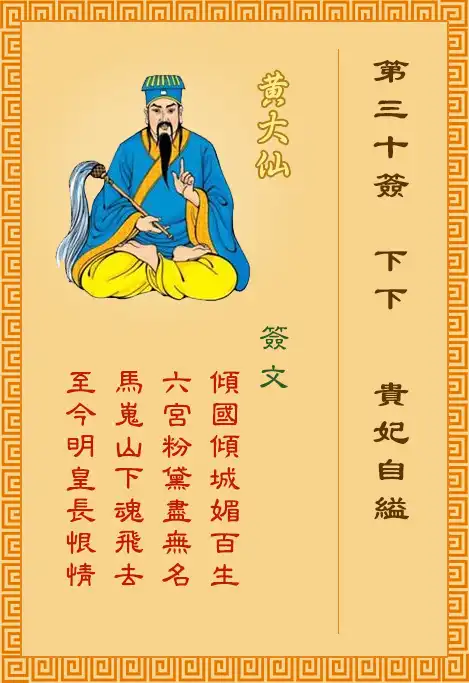 第三十簽 下下 貴妃自縊
黃大仙
簽文
傾國傾城媚百生
六宮粉黛盡無名
馬嵬山下魂飛去
至今明皇長恨情